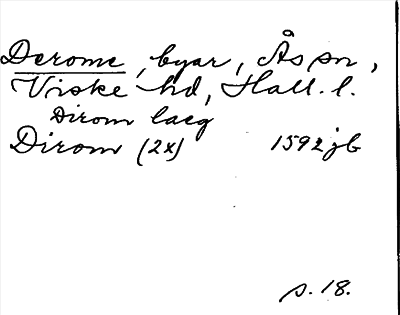 Derome, byar, Ås sn,
Viske hd, Hall. l.
Dirom laeg
Dirom (2x) 1592 jb
s. 18.